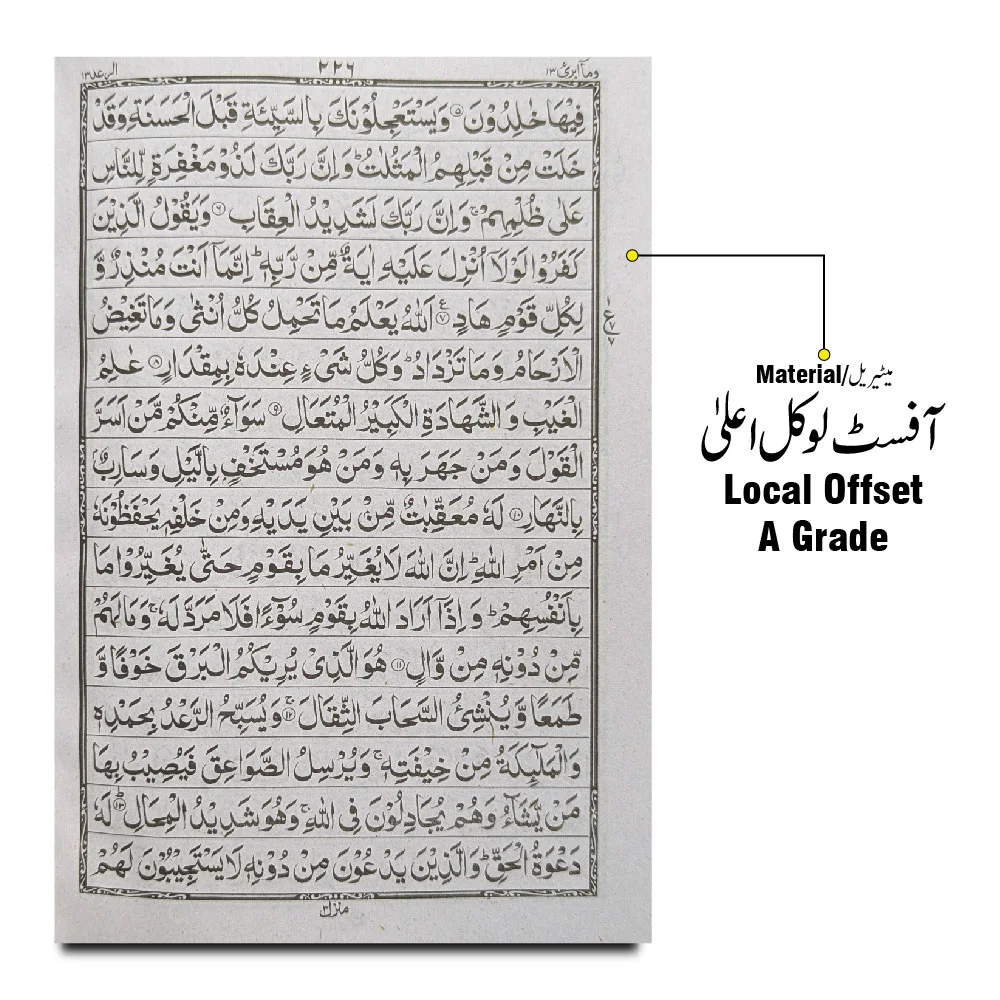 وما ابرئ ۱۳ ۲۲۶ الرعد ۱۳
فِيْهَا خٰلِدُوْنَ ۵ وَيَسْتَعْجِلُوْنَكَ بِالسَّيِّئَةِ قَبْلَ الْحَسَنَةِ وَقَدْ
خَلَتْ مِنْ قَبْلِهِمُ الْمَثُلٰتُ ؕ وَاِنَّ رَبَّكَ لَذُوْ مَغْفِرَةٍ لِّلنَّاسِ
عَلٰى ظُلْمِهِمْ ۚ وَاِنَّ رَبَّكَ لَشَدِيْدُ الْعِقَابِ ۶ وَيَقُوْلُ الَّذِيْنَ
كَفَرُوْا لَوْلَاۤ اُنْزِلَ عَلَيْهِ اٰيَةٌ مِّنْ رَّبِّهٖ ؕ اِنَّمَاۤ اَنْتَ مُنْذِرٌ وَّ
لِكُلِّ قَوْمٍ هَادٍ ۷ ع اَللّٰهُ يَعْلَمُ مَا تَحْمِلُ كُلُّ اُنْثٰى وَمَا تَغِيْضُ
الْاَرْحَامُ وَمَا تَزْدَادُ ؕ وَكُلُّ شَىْءٍ عِنْدَهٗ بِمِقْدَارٍ ۸ عٰلِمُ
الْغَيْبِ وَالشَّهَادَةِ الْكَبِيْرُ الْمُتَعَالِ ۹ سَوَآءٌ مِّنْكُمْ مَّنْ اَسَرَّ
الْقَوْلَ وَمَنْ جَهَرَ بِهٖ وَمَنْ هُوَ مُسْتَخْفٍ بِالَّيْلِ وَسَارِبٌۢ
بِالنَّهَارِ ۱۰ لَهٗ مُعَقِّبٰتٌ مِّنْۢ بَيْنِ يَدَيْهِ وَمِنْ خَلْفِهٖ يَحْفَظُوْنَهٗ
مِنْ اَمْرِ اللّٰهِ ؕ اِنَّ اللّٰهَ لَا يُغَيِّرُ مَا بِقَوْمٍ حَتّٰى يُغَيِّرُوْا مَا
بِاَنْفُسِهِمْ ؕ وَاِذَاۤ اَرَادَ اللّٰهُ بِقَوْمٍ سُوْٓءًا فَلَا مَرَدَّ لَهٗ ۚ وَمَا لَهُمْ
مِّنْ دُوْنِهٖ مِنْ وَّالٍ ۱۱ هُوَ الَّذِيْ يُرِيْكُمُ الْبَرْقَ خَوْفًا وَّ
طَمَعًا وَّيُنْشِئُ السَّحَابَ الثِّقَالَ ۱۲ ۚ وَيُسَبِّحُ الرَّعْدُ بِحَمْدِهٖ
وَالْمَلٰٓئِكَةُ مِنْ خِيْفَتِهٖ ۚ وَيُرْسِلُ الصَّوَاعِقَ فَيُصِيْبُ بِهَا
مَنْ يَّشَآءُ وَهُمْ يُجَادِلُوْنَ فِى اللّٰهِ ۚ وَهُوَ شَدِيْدُ الْمِحَالِ ۱۳ ؕ لَهٗ
دَعْوَةُ الْحَقِّ ؕ وَالَّذِيْنَ يَدْعُوْنَ مِنْ دُوْنِهٖ لَا يَسْتَجِيْبُوْنَ لَهُمْ
منزل ۳
Material/میٹیریل
آفسٹ لوکل اعلیٰ
Local Offset
A Grade